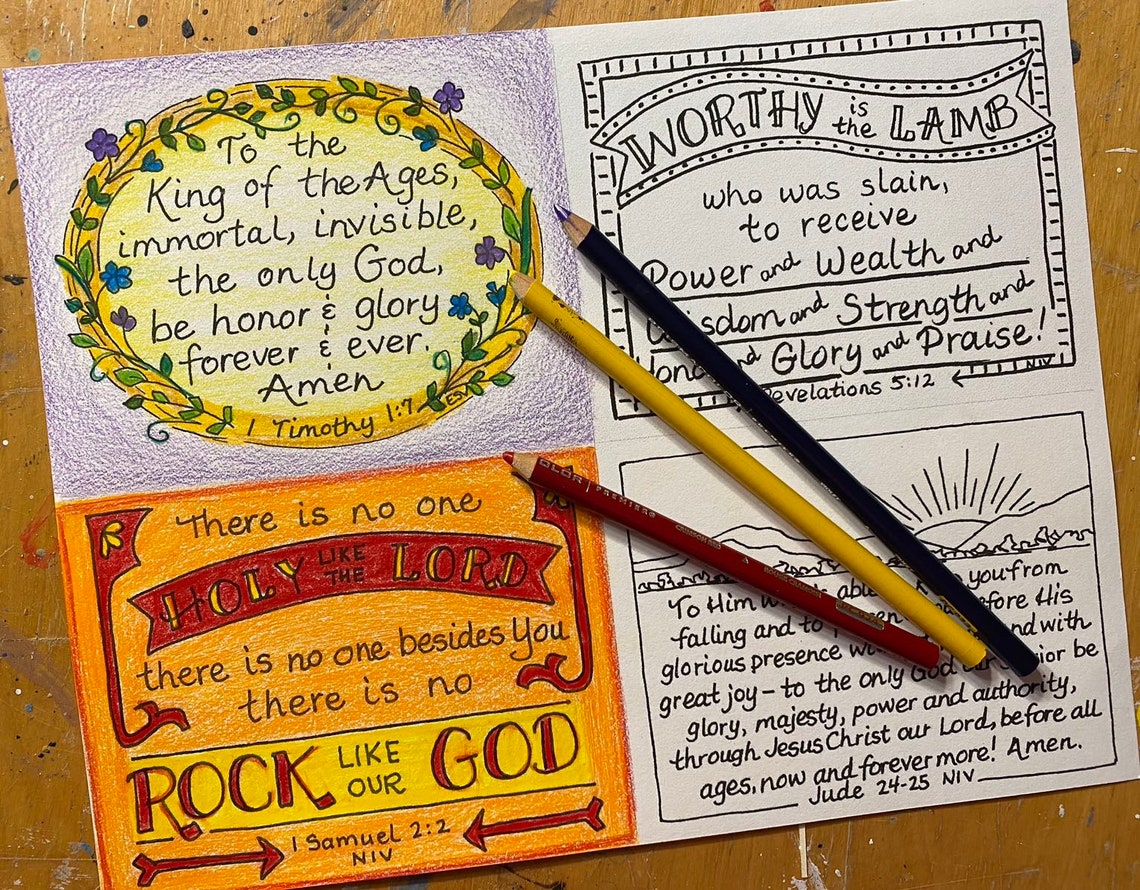 To the
King of the Ages,
immortal, invisible,
the only God,
be honor & glory
forever & ever.
Amen
1 Timothy 1:7
ESV
WORTHY is the LAMB
who was slain,
to receive
Power and Wealth and
and Strength and
Glory and Praise!
NIV
5:12
There is no one
HOLY LIKE THE LORD
there is no one besides You
there is no
ROCK LIKE OUR GOD
1 Samuel 2:2
NIV
To Him you from
falling and to His
glorious presence and with
great joy – to the only God be
glory, majesty, power and authority,
through Jesus Christ our Lord, before all
ages, now and forevermore! Amen.
Jude 24-25 NIV
PREMIER